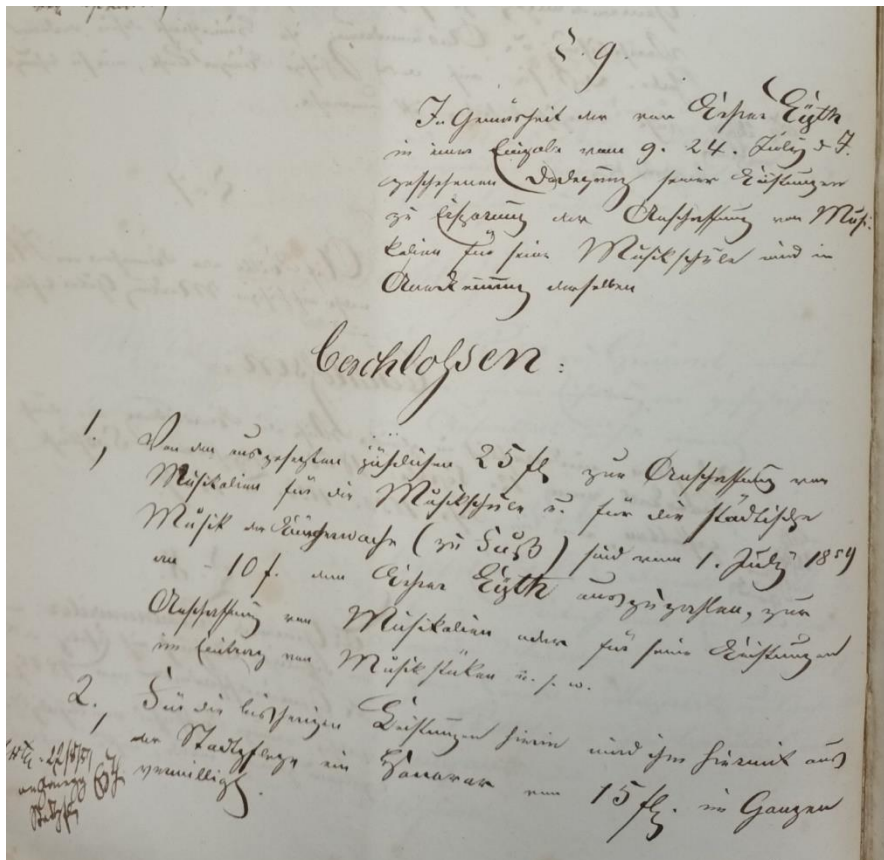 §. 9.
In Gemäsheit der von Lehrer Eyth
in einer Eingabe vom 9. 24. July d. J.
geschehenen Darlegung seiner Leistungen
zu Ersparung der Anschaffung von Musi-
kalien für seine Musikschule wird in
Anerkennung derselben
beschlossen:
1., Von den ausgesezten jährlichen 25 fl zur Anschaffung von
Musikalien für die Musikschule u. für die städtische
Musik der Bürgerwache (zu Fuß) sind vom 1. July 1859
an 10 f. dem Lehrer Eyth auszuzahlen, zur
Anschaffung von Musikalien oder für seine Leistungen
im Eintrag von Musikstüken u. s. w.
2., Für die bisherigen Leistungen hierin wird ihm hiermit aus
der Stadtpflege ein Honorar von 15 fl. im Ganzen
verwilligt.
Stadtpfl